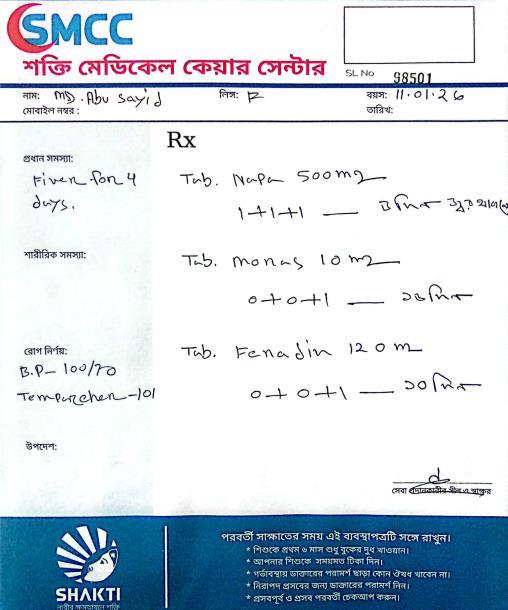 SMCC
শক্তি মেডিকেল কেয়ার সেন্টার
SL No 98501
নাম: MD. Abu Sayid লিঙ্গ: বয়স: 11.01.26
মোবাইল নম্বর : তারিখ:
Rx
প্রধান সমস্যা:
Fiven for 4
days.
Tab. Napa 500mg
1+1+1 — ৩ দিন জ্বর থাকলে
শারীরিক সমস্যা:
Tab. Monas 10 mg
0+0+1 — দিন
রোগ নির্ণয়:
B.P- 100/70
-101
Tab. Fenadin 120 m
0+0+1 — ১০ দিন
উপদেশ:
সেবা প্রদানকারীর সীল ও স্বাক্ষর
SHAKTI
নারীর ক্ষমতায়নে শক্তি
পরবর্তী সাক্ষাতের সময় এই ব্যবস্থাপত্রটি সঙ্গে রাখুন।
* শিশুকে প্রথম ৬ মাস শুধু বুকের দুধ খাওয়ান।
* আপনার শিশুকে সময়মত টিকা দিন।
* গর্ভাবস্থায় ডাক্তারের পরামর্শ ছাড়া কোন ঔষধ খাবেন না।
* নিরাপদ প্রসবের জন্য ডাক্তারের পরামর্শ নিন।
* প্রসবপূর্ব ও প্রসব পরবর্তী চেকআপ করুন।